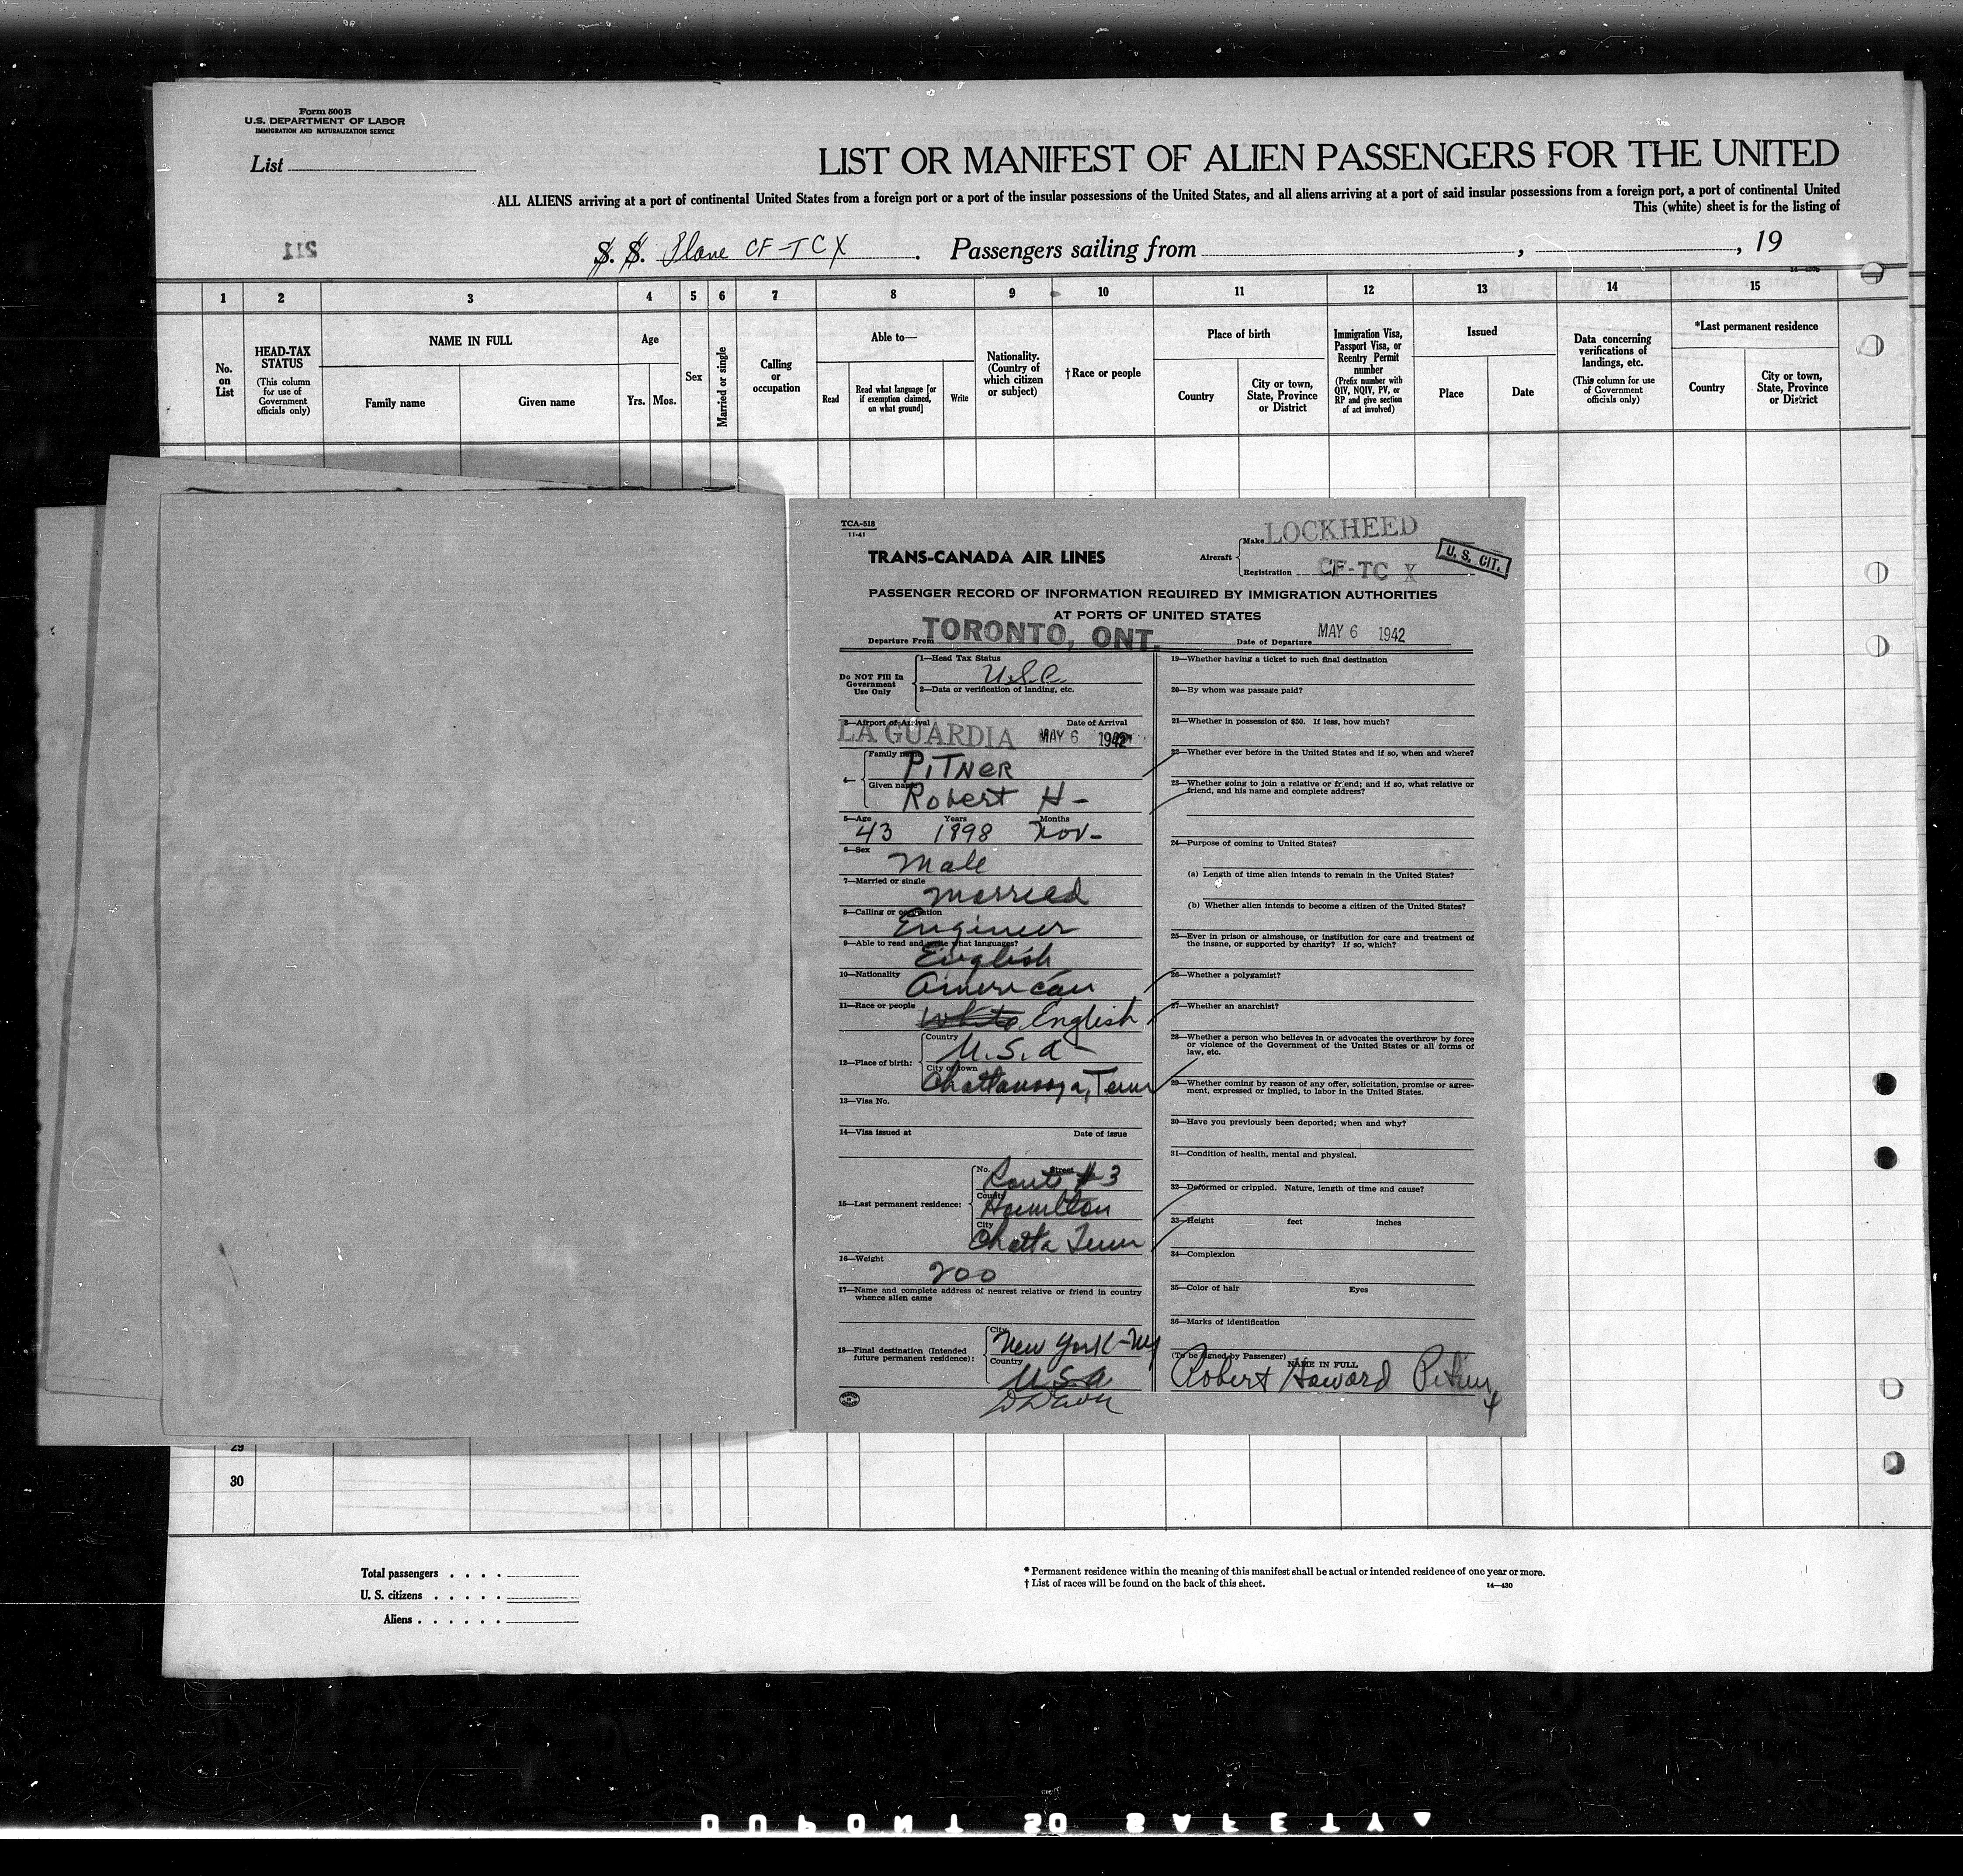 Form 500 B
U.S. DEPARTMENT OF LABOR
IMMIGRATION AND NATURALIZATION SERVICE
List
LIST OR MANIFEST OF ALIEN PASSENGERS FOR THE UNITED
ALL ALIENS arriving at a port of continental United States from a foreign port or a port of the insular possessions of the United States, and all aliens arriving at a port of said insular possessions from a foreign port, a port of continental United
This (white) sheet is for the listing of
211
S. S. Plane CF-TCX. Passengers sailing from , , 19
1 2 3 4 5 6 7 8 9 10 11 12 13 14 15
No. on List
HEAD-TAX STATUS
(This column for use of Government officials only)
NAME IN FULL
Family name
Given name
Age
Yrs. Mos.
Sex
Married or single
Calling or occupation
Able to—
Read
Read what language [or if exemption claimed, on what ground]
Write
Nationality. (Country of which citizen or subject)
†Race or people
Place of birth
Country
City or town, State, Province or District
Immigration Visa, Passport Visa, or Reentry Permit number
(Prefix number with QIV, NQIV, PV, or RP and give section of act involved)
Issued
Place
Date
Data concerning verifications of landings, etc.
(This column for use of Government officials only)
*Last permanent residence
Country
City or town, State, Province or District
TCA-518
11-41
TRANS-CANADA AIR LINES
Aircraft
Make LOCKHEED
Registration CF-TC X
U. S. CIT.
PASSENGER RECORD OF INFORMATION REQUIRED BY IMMIGRATION AUTHORITIES
AT PORTS OF UNITED STATES
Departure From TORONTO, ONT. Date of Departure MAY 6 1942
Do NOT Fill In Government Use Only
1—Head Tax Status
U.S.C.
2—Data or verification of landing, etc.
3—Airport of Arrival Date of Arrival
LA GUARDIA MAY 6 1942
4— Family name
PITNER
Given name
Robert H-
5—Age Years Months
43 1898 Nov-
6—Sex
Male
7—Married or single
Married
8—Calling or occupation
Engineer
9—Able to read and write what languages?
English
10—Nationality
American
11—Race or people
White English
12—Place of birth:
Country
U.S.A-
City or town
Chattanooga, Tenn
13—Visa No.
14—Visa issued at Date of issue
15—Last permanent residence:
No. Street
Route #3
County
Hamilton
City
Chatta Tenn
16—Weight
200
17—Name and complete address of nearest relative or friend in country whence alien came
18—Final destination (Intended future permanent residence):
City
New York-NY
Country
USA
19—Whether having a ticket to such final destination
20—By whom was passage paid?
21—Whether in possession of $50. If less, how much?
22—Whether ever before in the United States and if so, when and where?
23—Whether going to join a relative or friend; and if so, what relative or friend, and his name and complete address?
24—Purpose of coming to United States?
(a) Length of time alien intends to remain in the United States?
(b) Whether alien intends to become a citizen of the United States?
25—Ever in prison or almshouse, or institution for care and treatment of the insane, or supported by charity? If so, which?
26—Whether a polygamist?
27—Whether an anarchist?
28—Whether a person who believes in or advocates the overthrow by force or violence of the Government of the United States or all forms of law, etc.
29—Whether coming by reason of any offer, solicitation, promise or agreement, expressed or implied, to labor in the United States.
30—Have you previously been deported; when and why?
31—Condition of health, mental and physical.
32—Deformed or crippled. Nature, length of time and cause?
33—Height feet inches
34—Complexion
35—Color of hair Eyes
36—Marks of identification
(To be signed by Passenger)
NAME IN FULL
Robert Howard Pitner
29
30
Total passengers . . . .
U. S. citizens . . . . .
Aliens . . . . . .
* Permanent residence within the meaning of this manifest shall be actual or intended residence of one year or more.
† List of races will be found on the back of this sheet.
14—430
DUPONT SO SAFETY